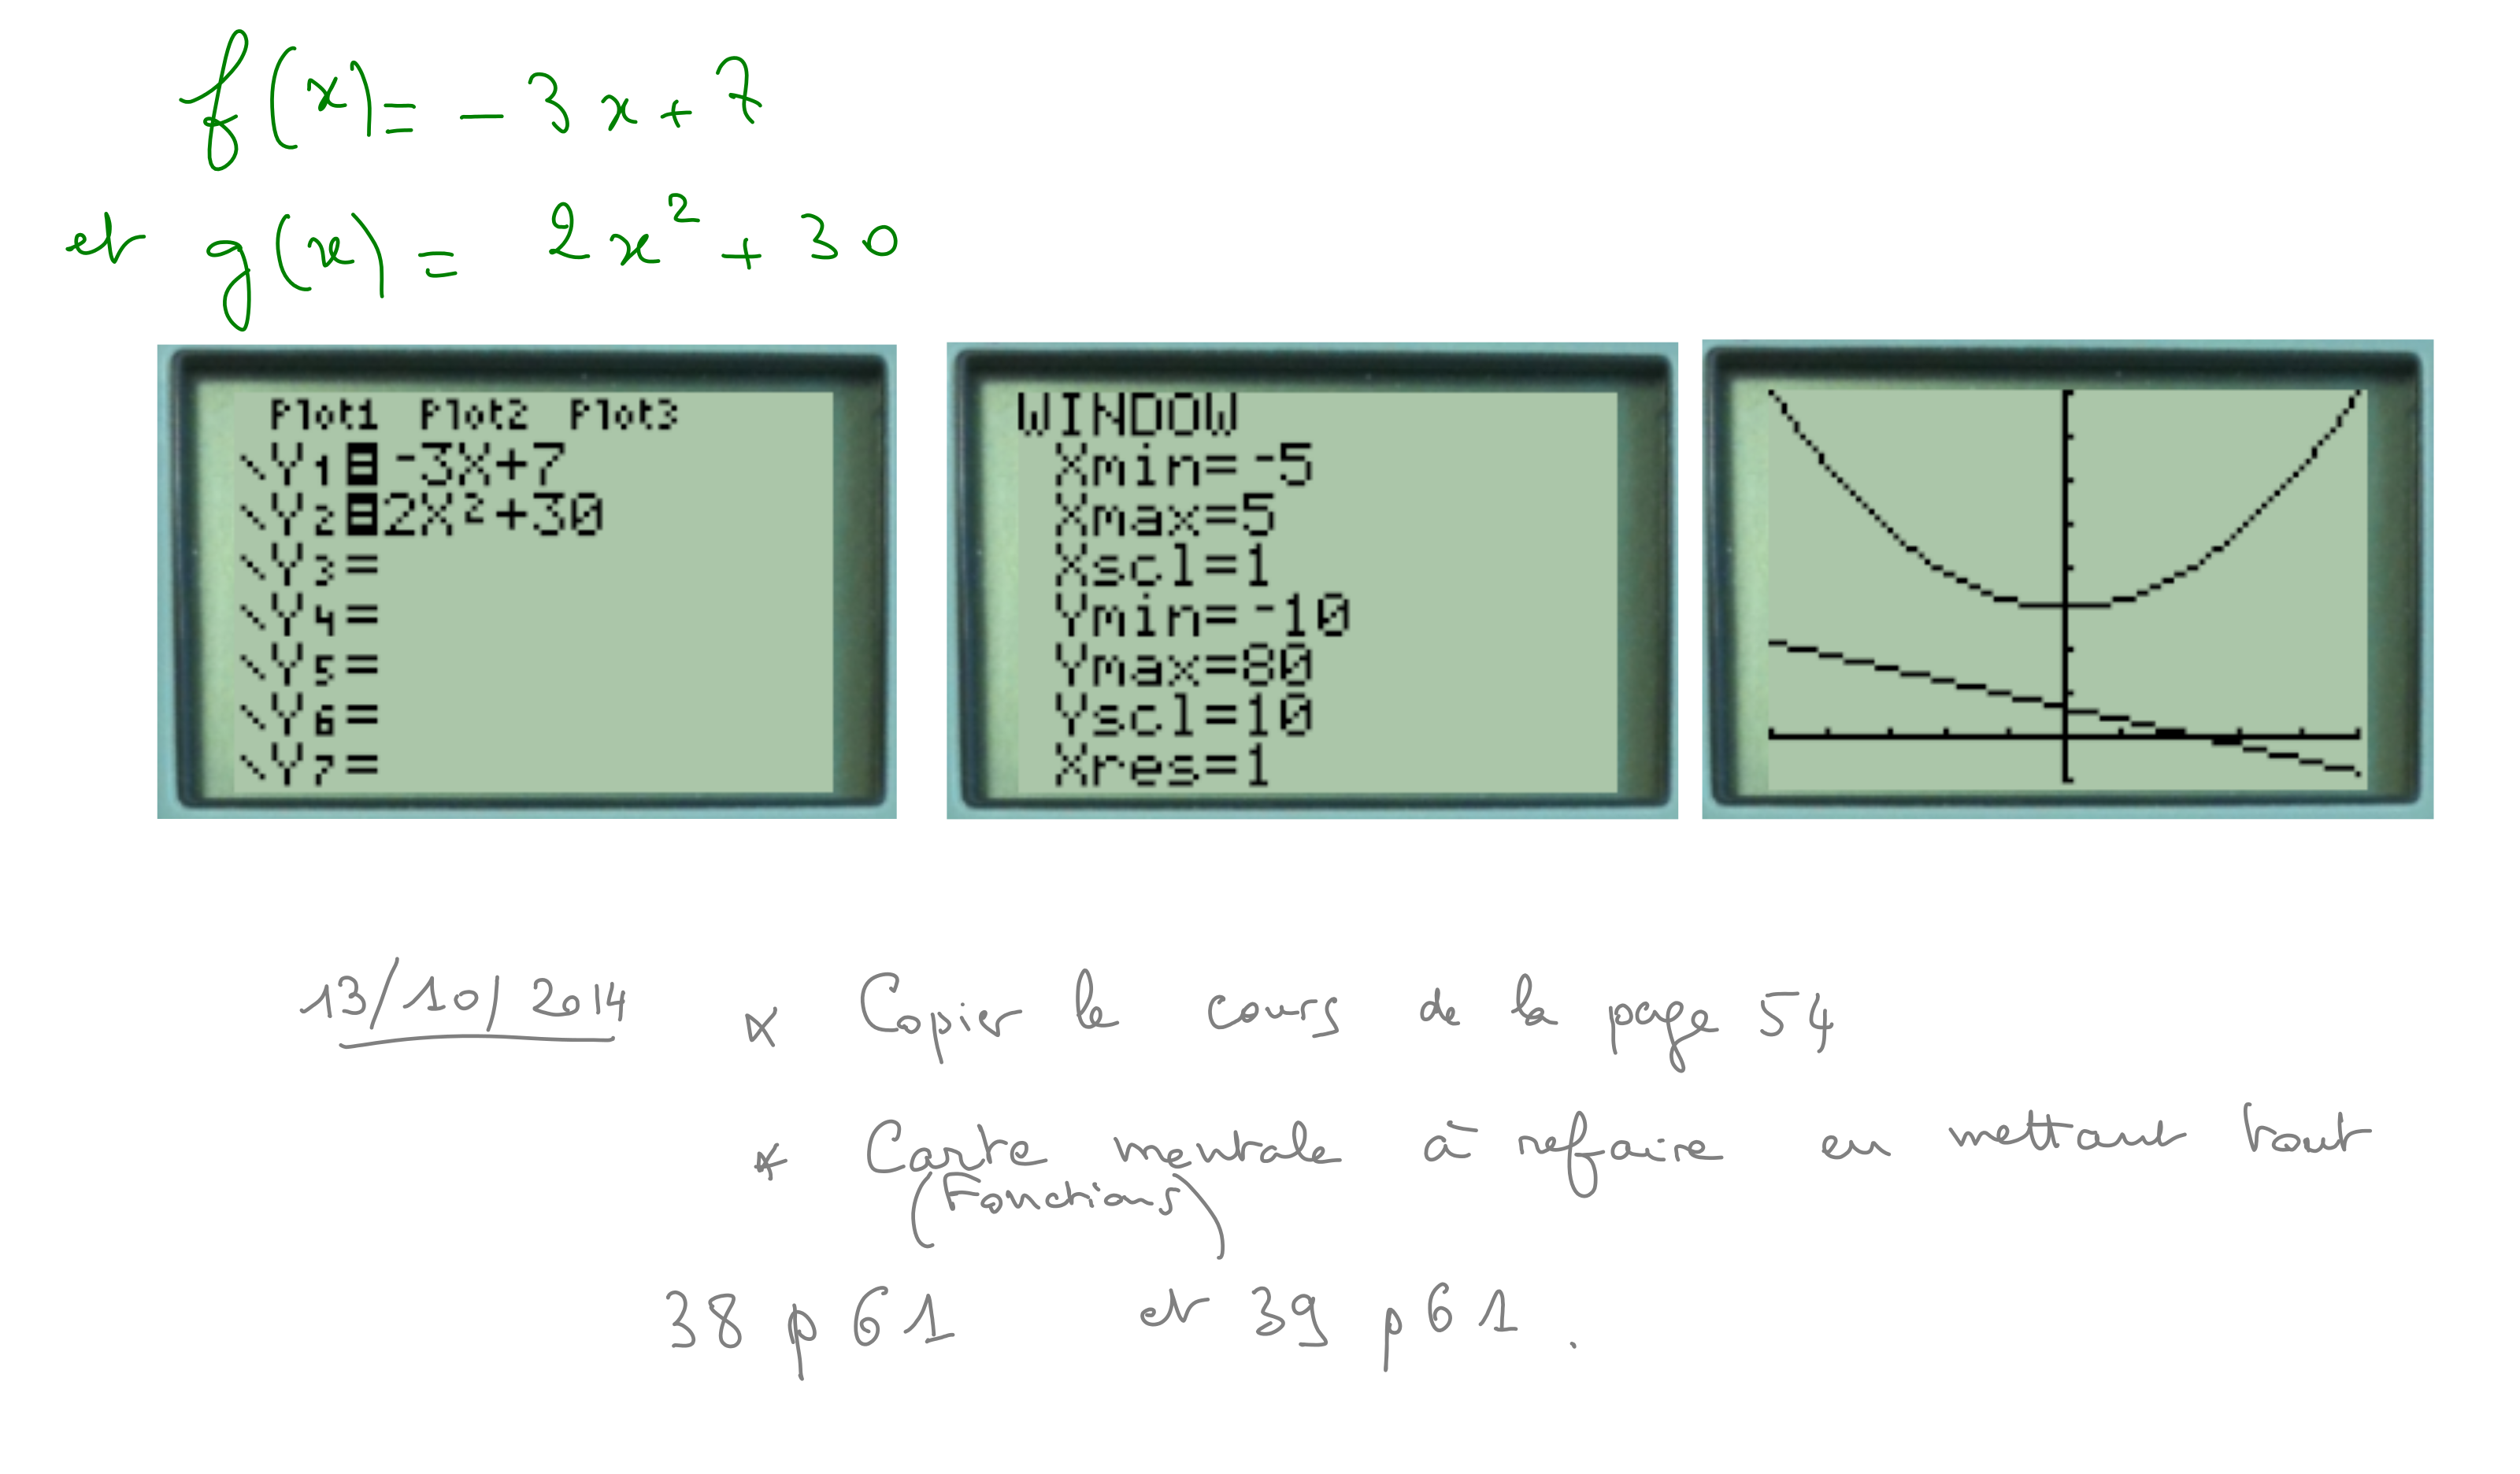 f(x) = -3x+7
et g(x) = 2x² + 30
Plot1 Plot2 Plot3
\Y1=-3X+7
\Y2=2X²+30
\Y3=
\Y4=
\Y5=
\Y6=
\Y7=
WINDOW
Xmin=-5
Xmax=5
Xscl=1
Ymin=-10
Ymax=80
Yscl=10
Xres=1
13/10/2014 * Copier le cours de la page 54
* Carte mentale à refaire en mettant tout
(Fonctions)
38 p 61 et 39 p 61.